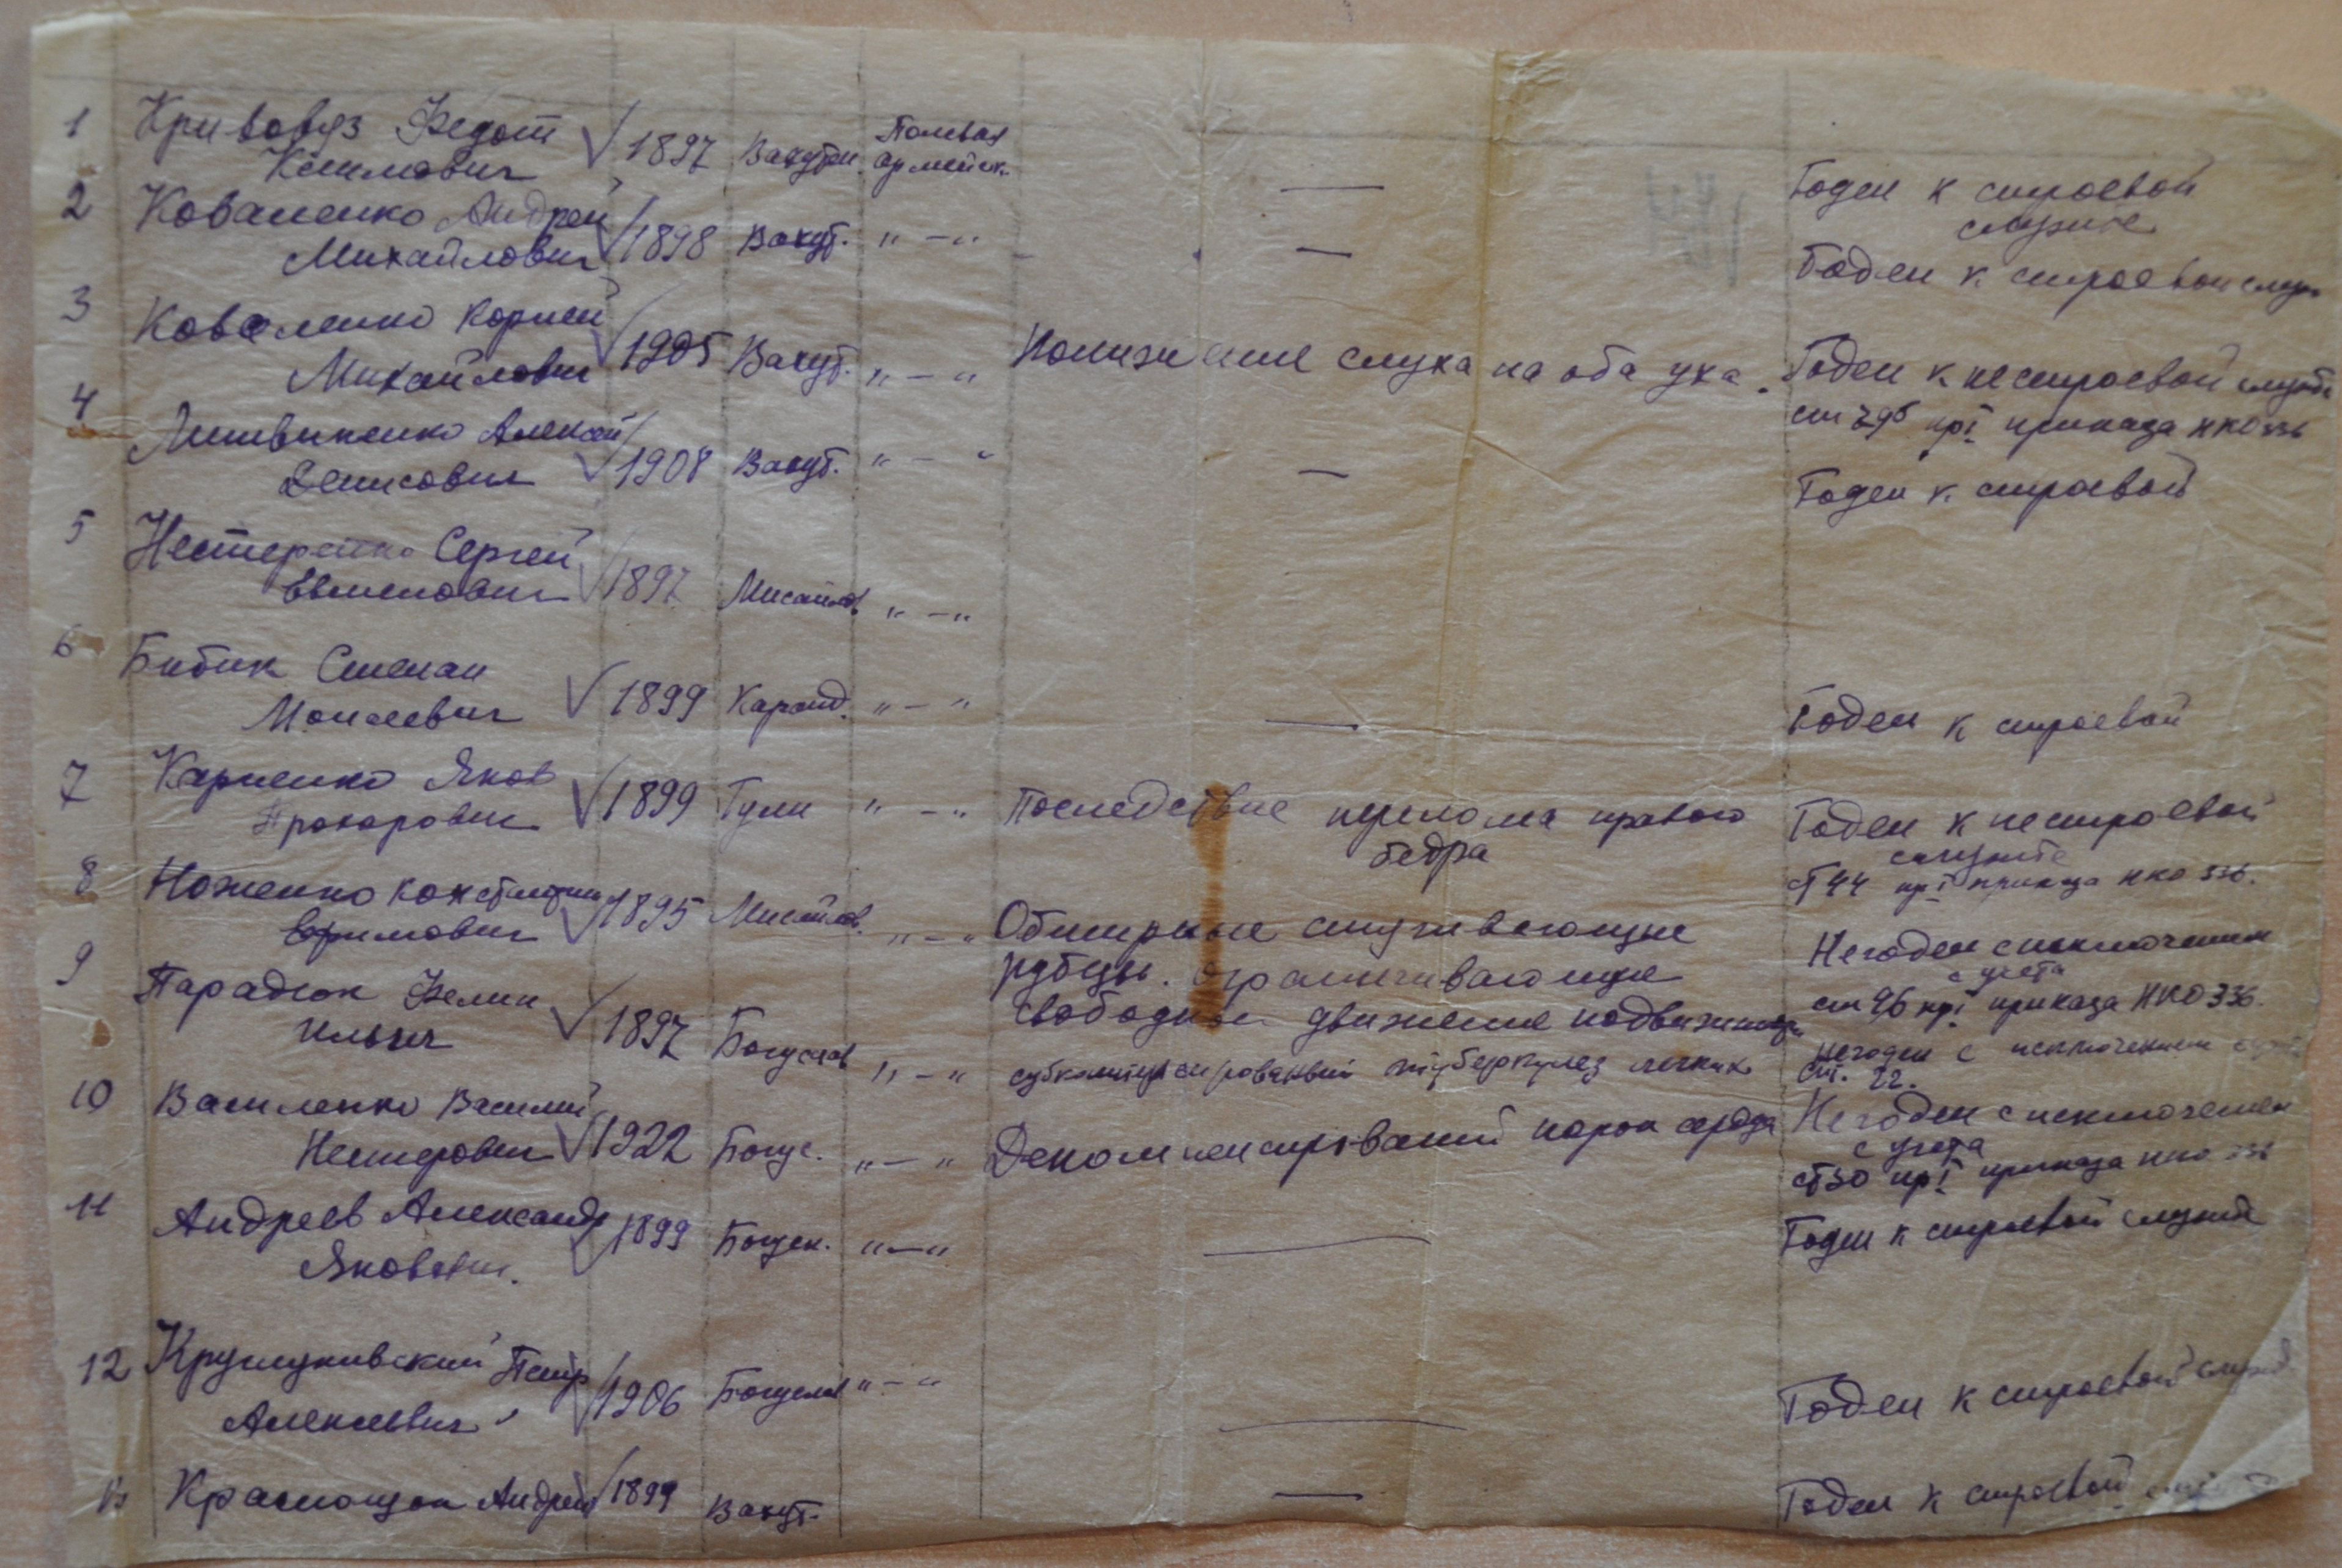 1 Кривовяз Федот 1897 Вахутин. Полевая
армейск.
Климович
Годен к строевой
службе
2 Коваленко Андрей
Михайлович 1898 Вахут. „ — „ —
Годен к строевой служ
3 Коваленко Корней
Михайлович 1905 Вахут. „ — „ Понижение слуха на оба уха. Годен к нестроевой службе
ст 29б пр I приказа НКО 336
4 Литвиненко Алексей
Денисович 1908 Вахут. „ — „ — Годен к строевой
5 Нестеренко Сергей
1897 Мисайлов. „ — „
6 Бибик Степан
Моисеевич 1899 Каранд. „ — „ — Годен к строевой
7 Карпенко Яков
Прохорович 1899 Тули „ — „ Последствие перелома правого
бедра
Годен к нестроевой
службе
ст 44 пр I приказа НКО 336.
8 Ноженко Константин
Ефимович 1895 Мисайлов. „ — „ Обширные стягивающие
рубцы. ограничивающие
свободное движение
Негоден с исключением
с учета
ст 96 пр I приказа НКО 336.
9 Парадюк
Ильич 1897 Богуслав „ — „ субкомпенсированный туберкулез легких
Негоден с исключением
ст. 22.
10 Василенко Василий
Нестерович 1922 Богус. „ — „ Декомпенсированый порок сердца
Негоден с исключением
с учета
ст 30 пр I приказа НКО 336
11 Андреев Александр
Яковлевич. 1899 „ — „ — Годен к строевой службе
12 Петр
Алексеевич 1906 Богуслав „ — „ — Годен к строевой
13 Краснощок Андрей 1899 Вахут. — Годен к строевой